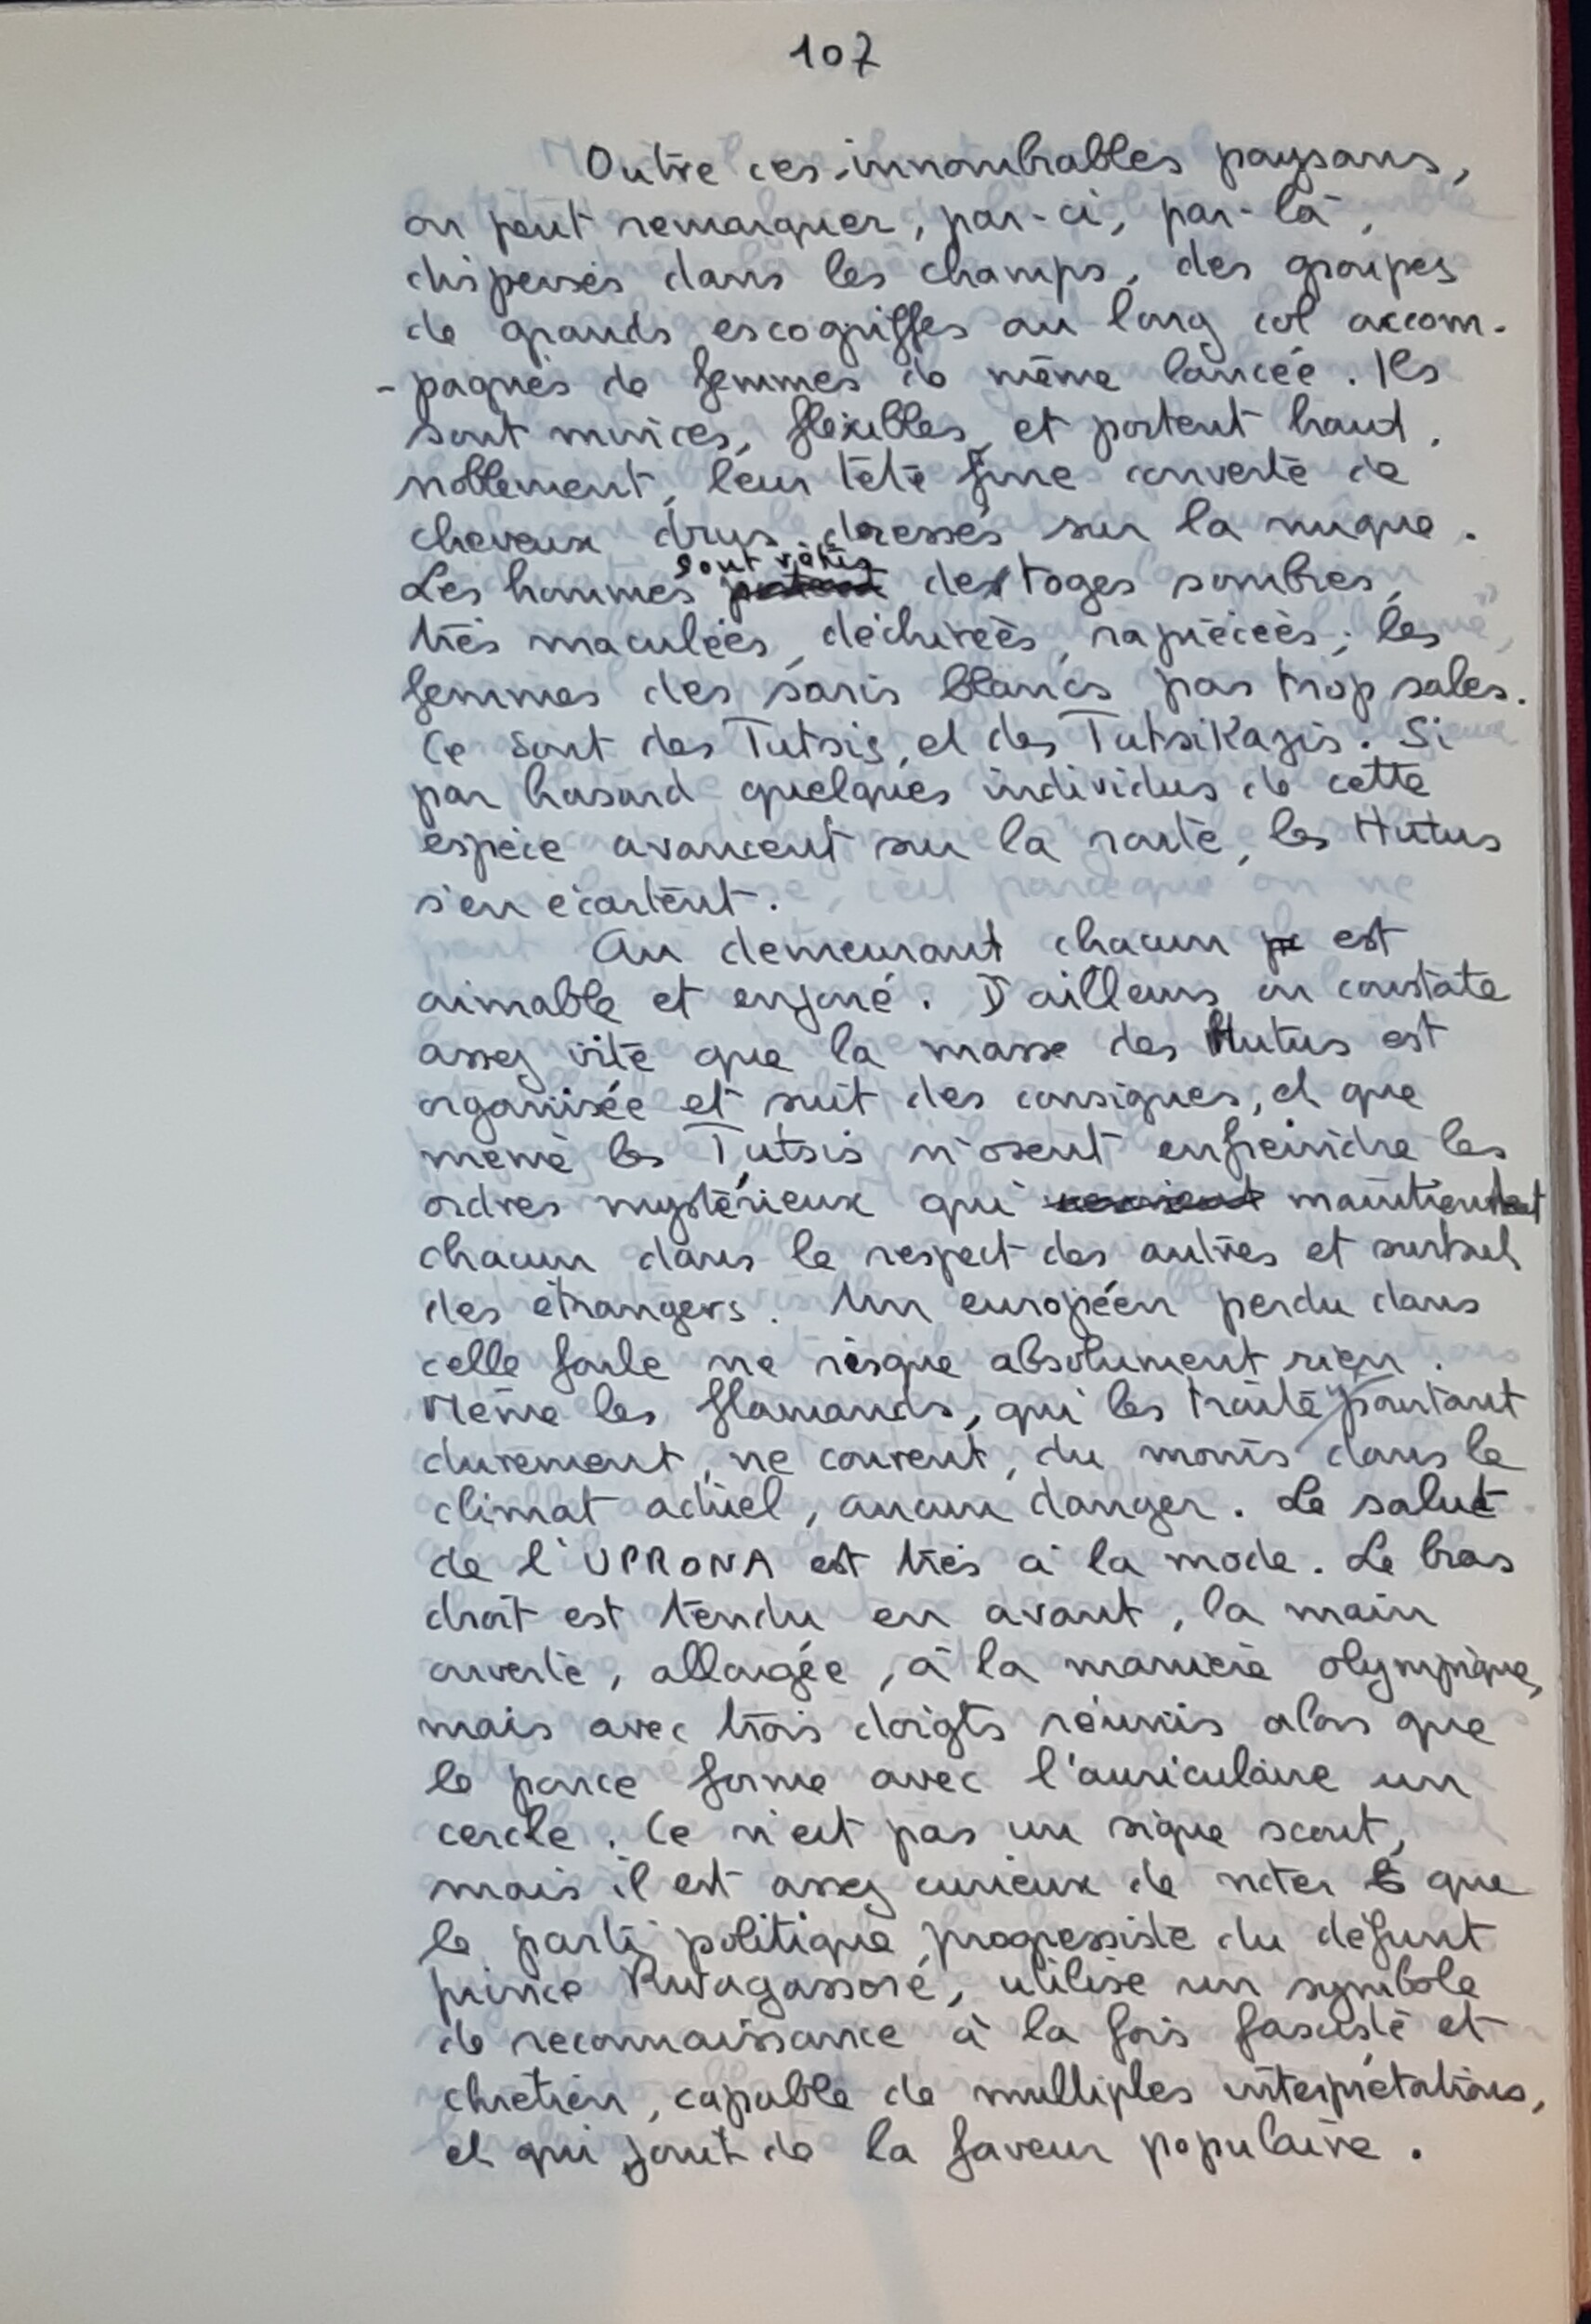 107
Outre ces innombrables paysans,
on peut remarquer, par-ci, par-là,
dispersés dans les champs, des groupes
de grands escogriffes au long col accom-
-pagnés de femmes de même lancée. Ils
sont minces, flexibles, et portent haut,
noblement, leur tête fine couverte de
cheveux drus dressés sur la nuque.
Les hommes sont vêtus de toges sombres,
très maculées, déchirées, rapiécées; les
femmes des saris blancs pas trop sales.
Ce sont des Tutsis, et des TutsiKazis. Si
par hasard quelques individus de cette
espèce avancent sur la route, les Hutus
s'en écartent.
Au demeurant chacun est
aimable et enjoué. D'ailleurs on constate
assez vite que la masse des Hutus est
organisée et suit des consignes, et que
même les Tutsis n'osent enfreindre les
ordres mystérieux qui maintiennent
chacun dans le respect des autres et surtout
des étrangers. Un européen perdu dans
celle foule ne risque absolument rien.
Même les flamands, qui les traite pourtant
durement, ne courent, du moins dans le
climat actuel, aucun danger. Le salut
de l'UPRONA est très à la mode. Le bras
droit est tendu en avant, la main
ouverte, allongée, à la manière olympique,
mais avec trois doigts réunis alors que
le pouce forme avec l'auriculaire un
cercle. Ce n'est pas un signe scout,
mais il est assez curieux de noter que
le parti politique progressiste du défunt
prince Rwagassoré, utilise un symbole
de reconnaissance à la fois fasciste et
chrétien, capable de multiples interprétations,
et qui jouit de la faveur populaire.